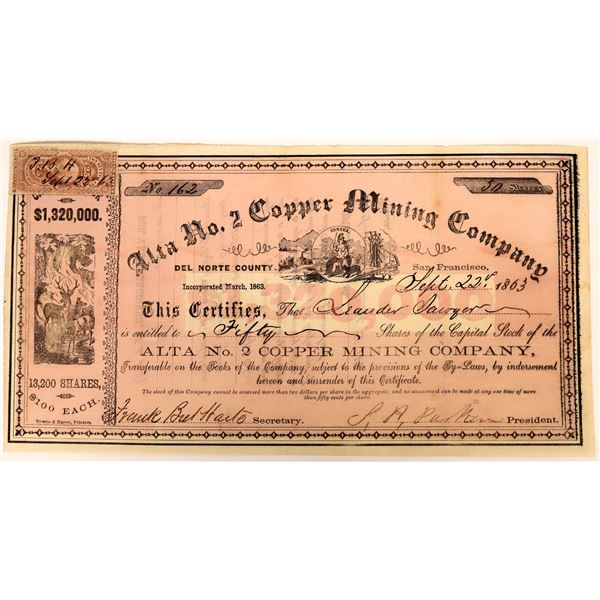 F B H
Sept 23 63
$1,320,000.
13,200 SHARES,
$100 EACH,
Towne & Bacon, Printers.
No. 162
50 Shares
Alta No. 2 Copper Mining Company
EUREKA
DEL NORTE COUNTY.
San Francisco,
Incorporated March, 1863.
Sept. 22d 1863
This Certifies, That Leander Sawyer
is entitled to Fifty Shares of the Capital Stock of the
ALTA No. 2 COPPER MINING COMPANY,
Transferable on the Books of the Company, subject to the provisions of the By-Laws, by indorsement
hereon and surrender of this Certificate.
The stock of this Company cannot be assessed more than two dollars per share in the aggregate, and no assessment can be made at any one time of more
than fifty cents per share.
Frank Bret Harte Secretary.
President.